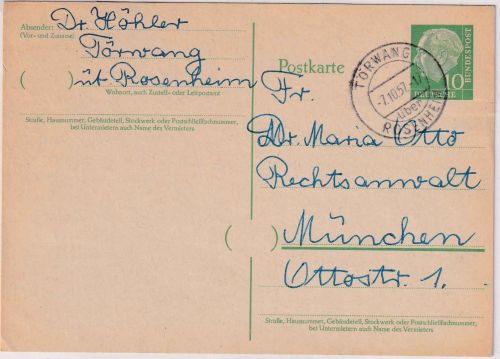 Absender:
(Vor- und Zuname)
Dr. Höhler
Törwang
üb Rosenheim
Wohnort, auch Zustell- oder Leitpostamt
Straße, Hausnummer, Gebäudeteil, Stockwerk oder Postschließfachnummer,
bei Untermietern auch Name des Vermieters
Postkarte
TÖRWANG
-7.10.57
über
ROSENHEIM
10
DEUTSCHE
BUNDESPOST
Fr.
Dr. Maria Otto
Rechtsanwalt
München
Ottostr. 1.
Straße, Hausnummer, Gebäudeteil, Stockwerk oder Postschließfachnummer,
bei Untermietern auch Name des Vermieters